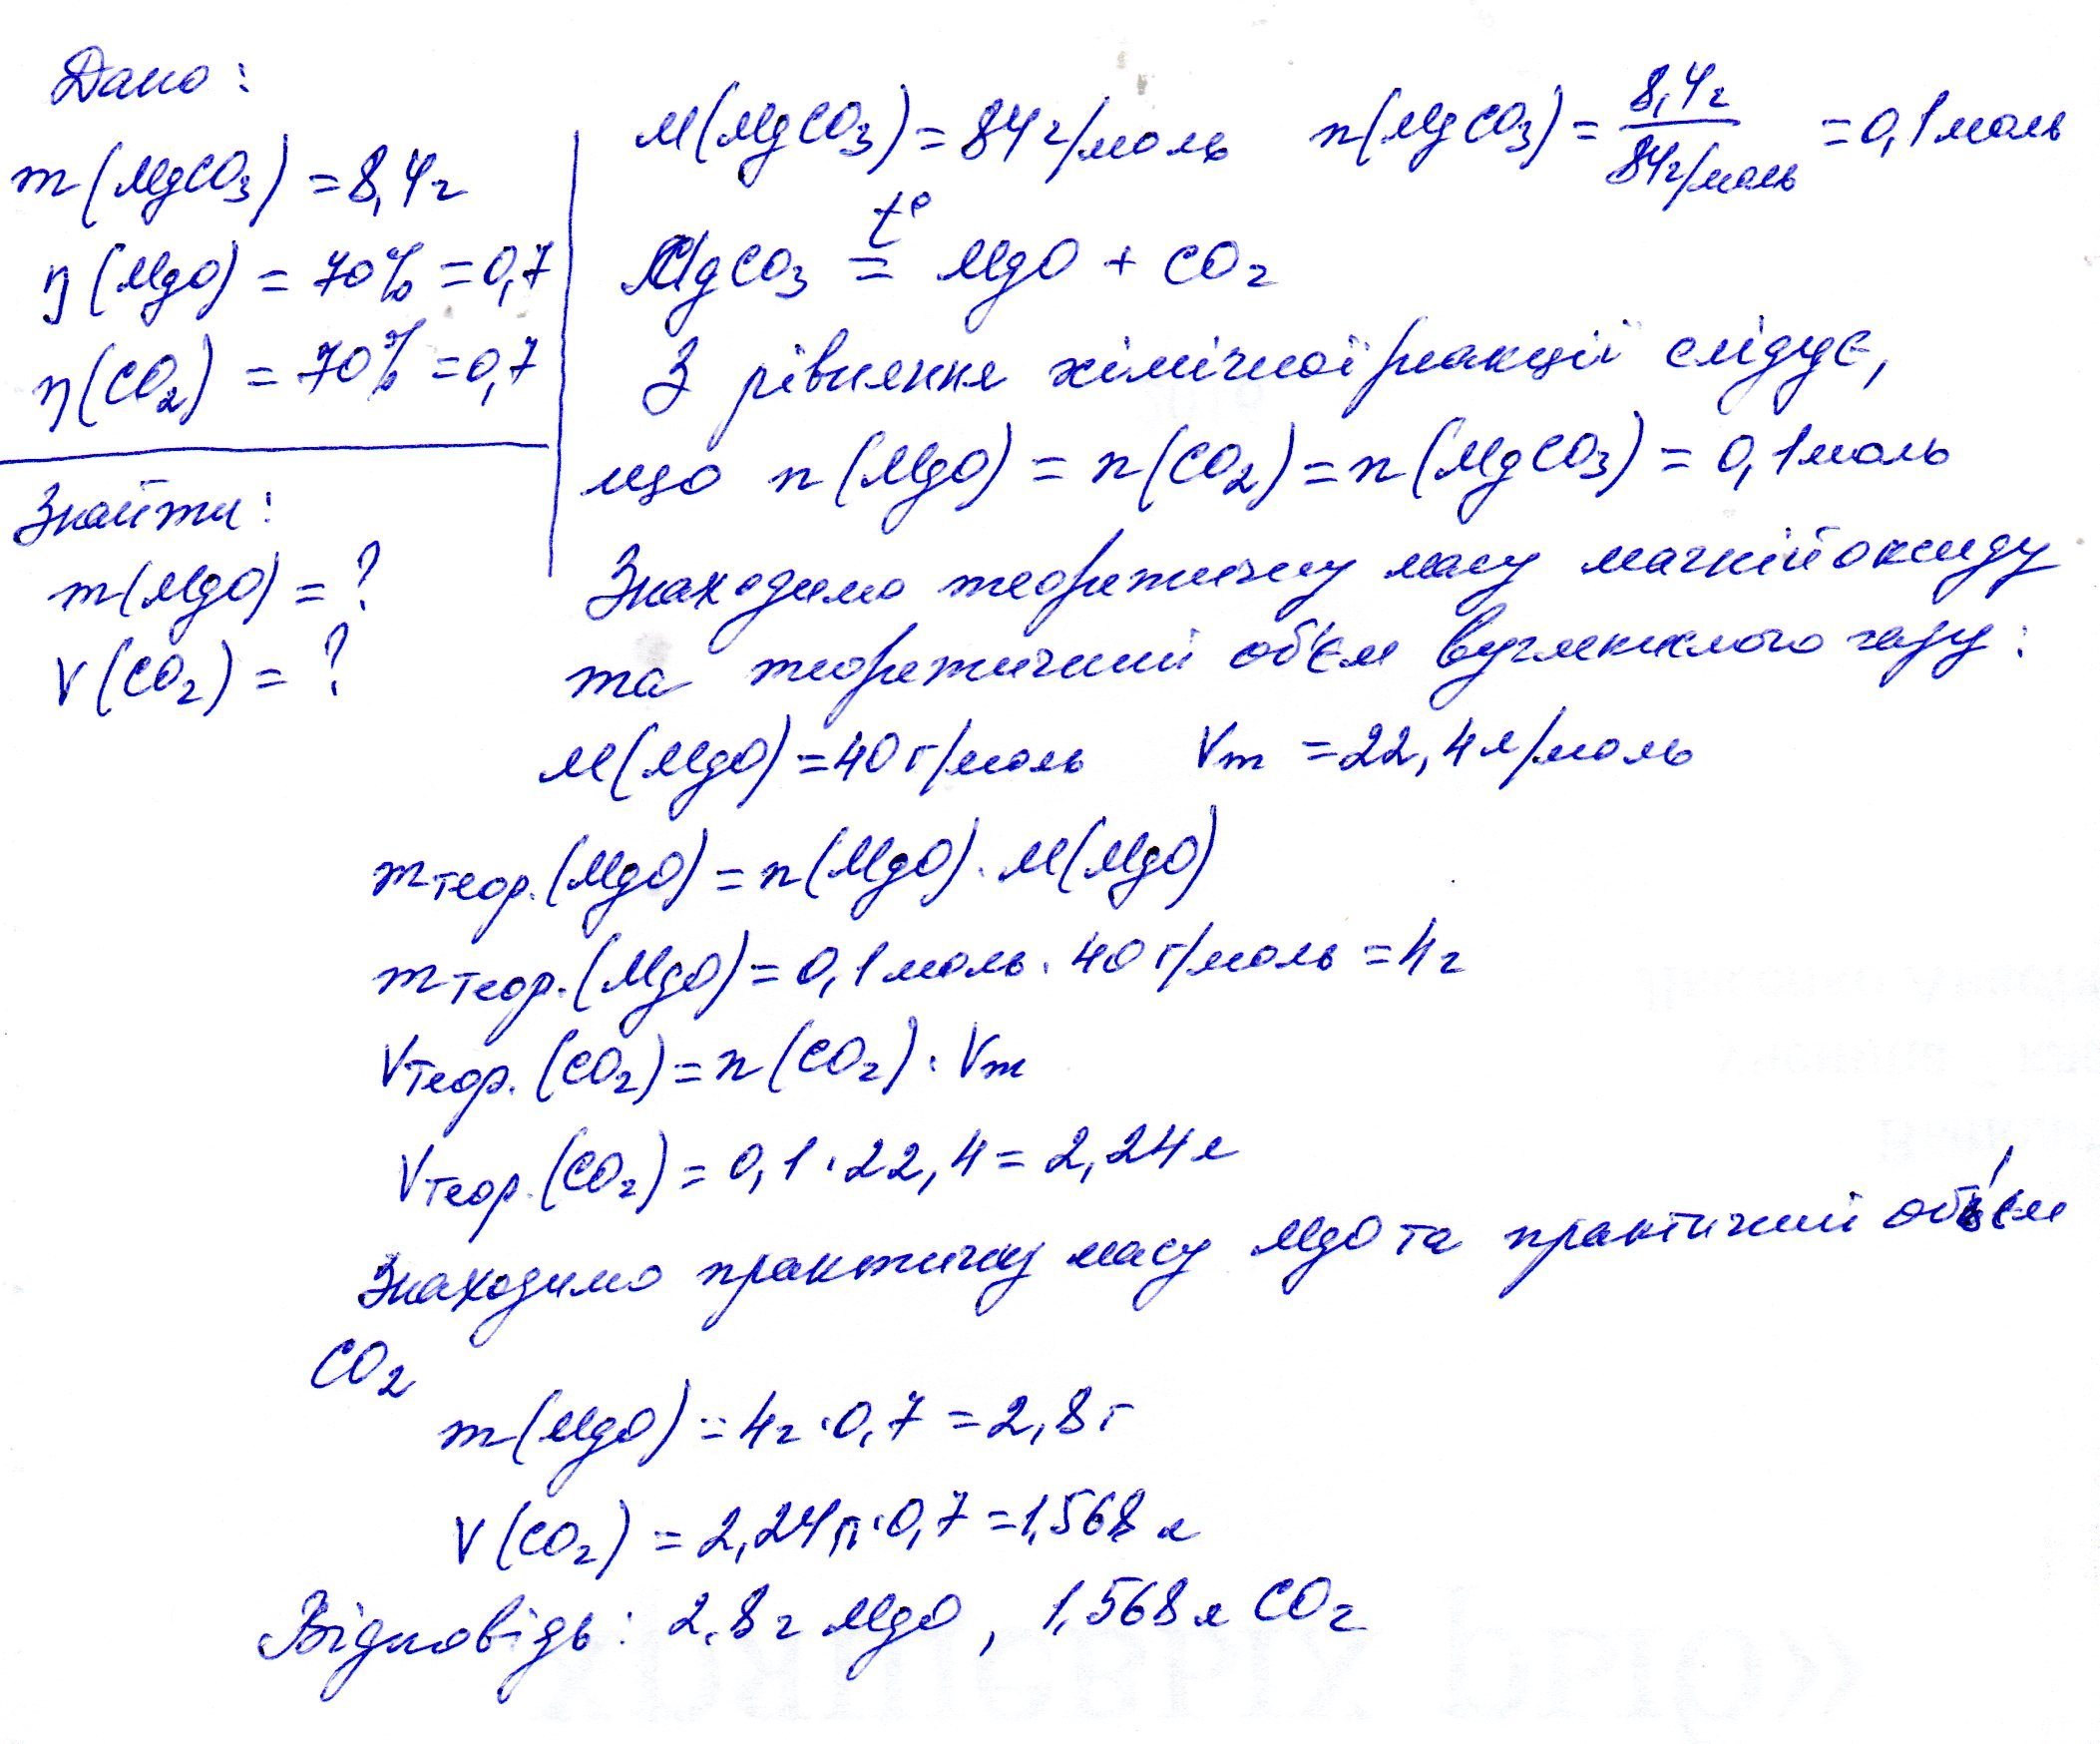 Дано:
m(MgCO3) = 8,4г
η(MgO) = 70% = 0,7
η(CO2) = 70% = 0,7
Знайти:
m(MgO) = ?
V(CO2) = ?
M(MgCO3) = 84г/моль n(MgCO3) = 8,4г / 84г/моль = 0,1моль
t°
MgCO3 = MgO + CO2
З рівняння хімічної реакції слідує,
що n(MgO) = n(CO2) = n(MgCO3) = 0,1моль
Знаходимо теоретичну масу магнійоксиду
та теоретичний об'єм вуглекислого газу:
M(MgO) = 40г/моль Vm = 22,4л/моль
mтеор.(MgO) = n(MgO)·M(MgO)
mтеор.(MgO) = 0,1моль·40г/моль = 4г
Vтеор.(CO2) = n(CO2)·Vm
Vтеор.(CO2) = 0,1·22,4 = 2,24л
Знаходимо практичну масу MgO та практичний об'єм
CO2
m(MgO) = 4г·0,7 = 2,8г
V(CO2) = 2,24л·0,7 = 1,568л
Відповідь: 2,8г MgO, 1,568л CO2